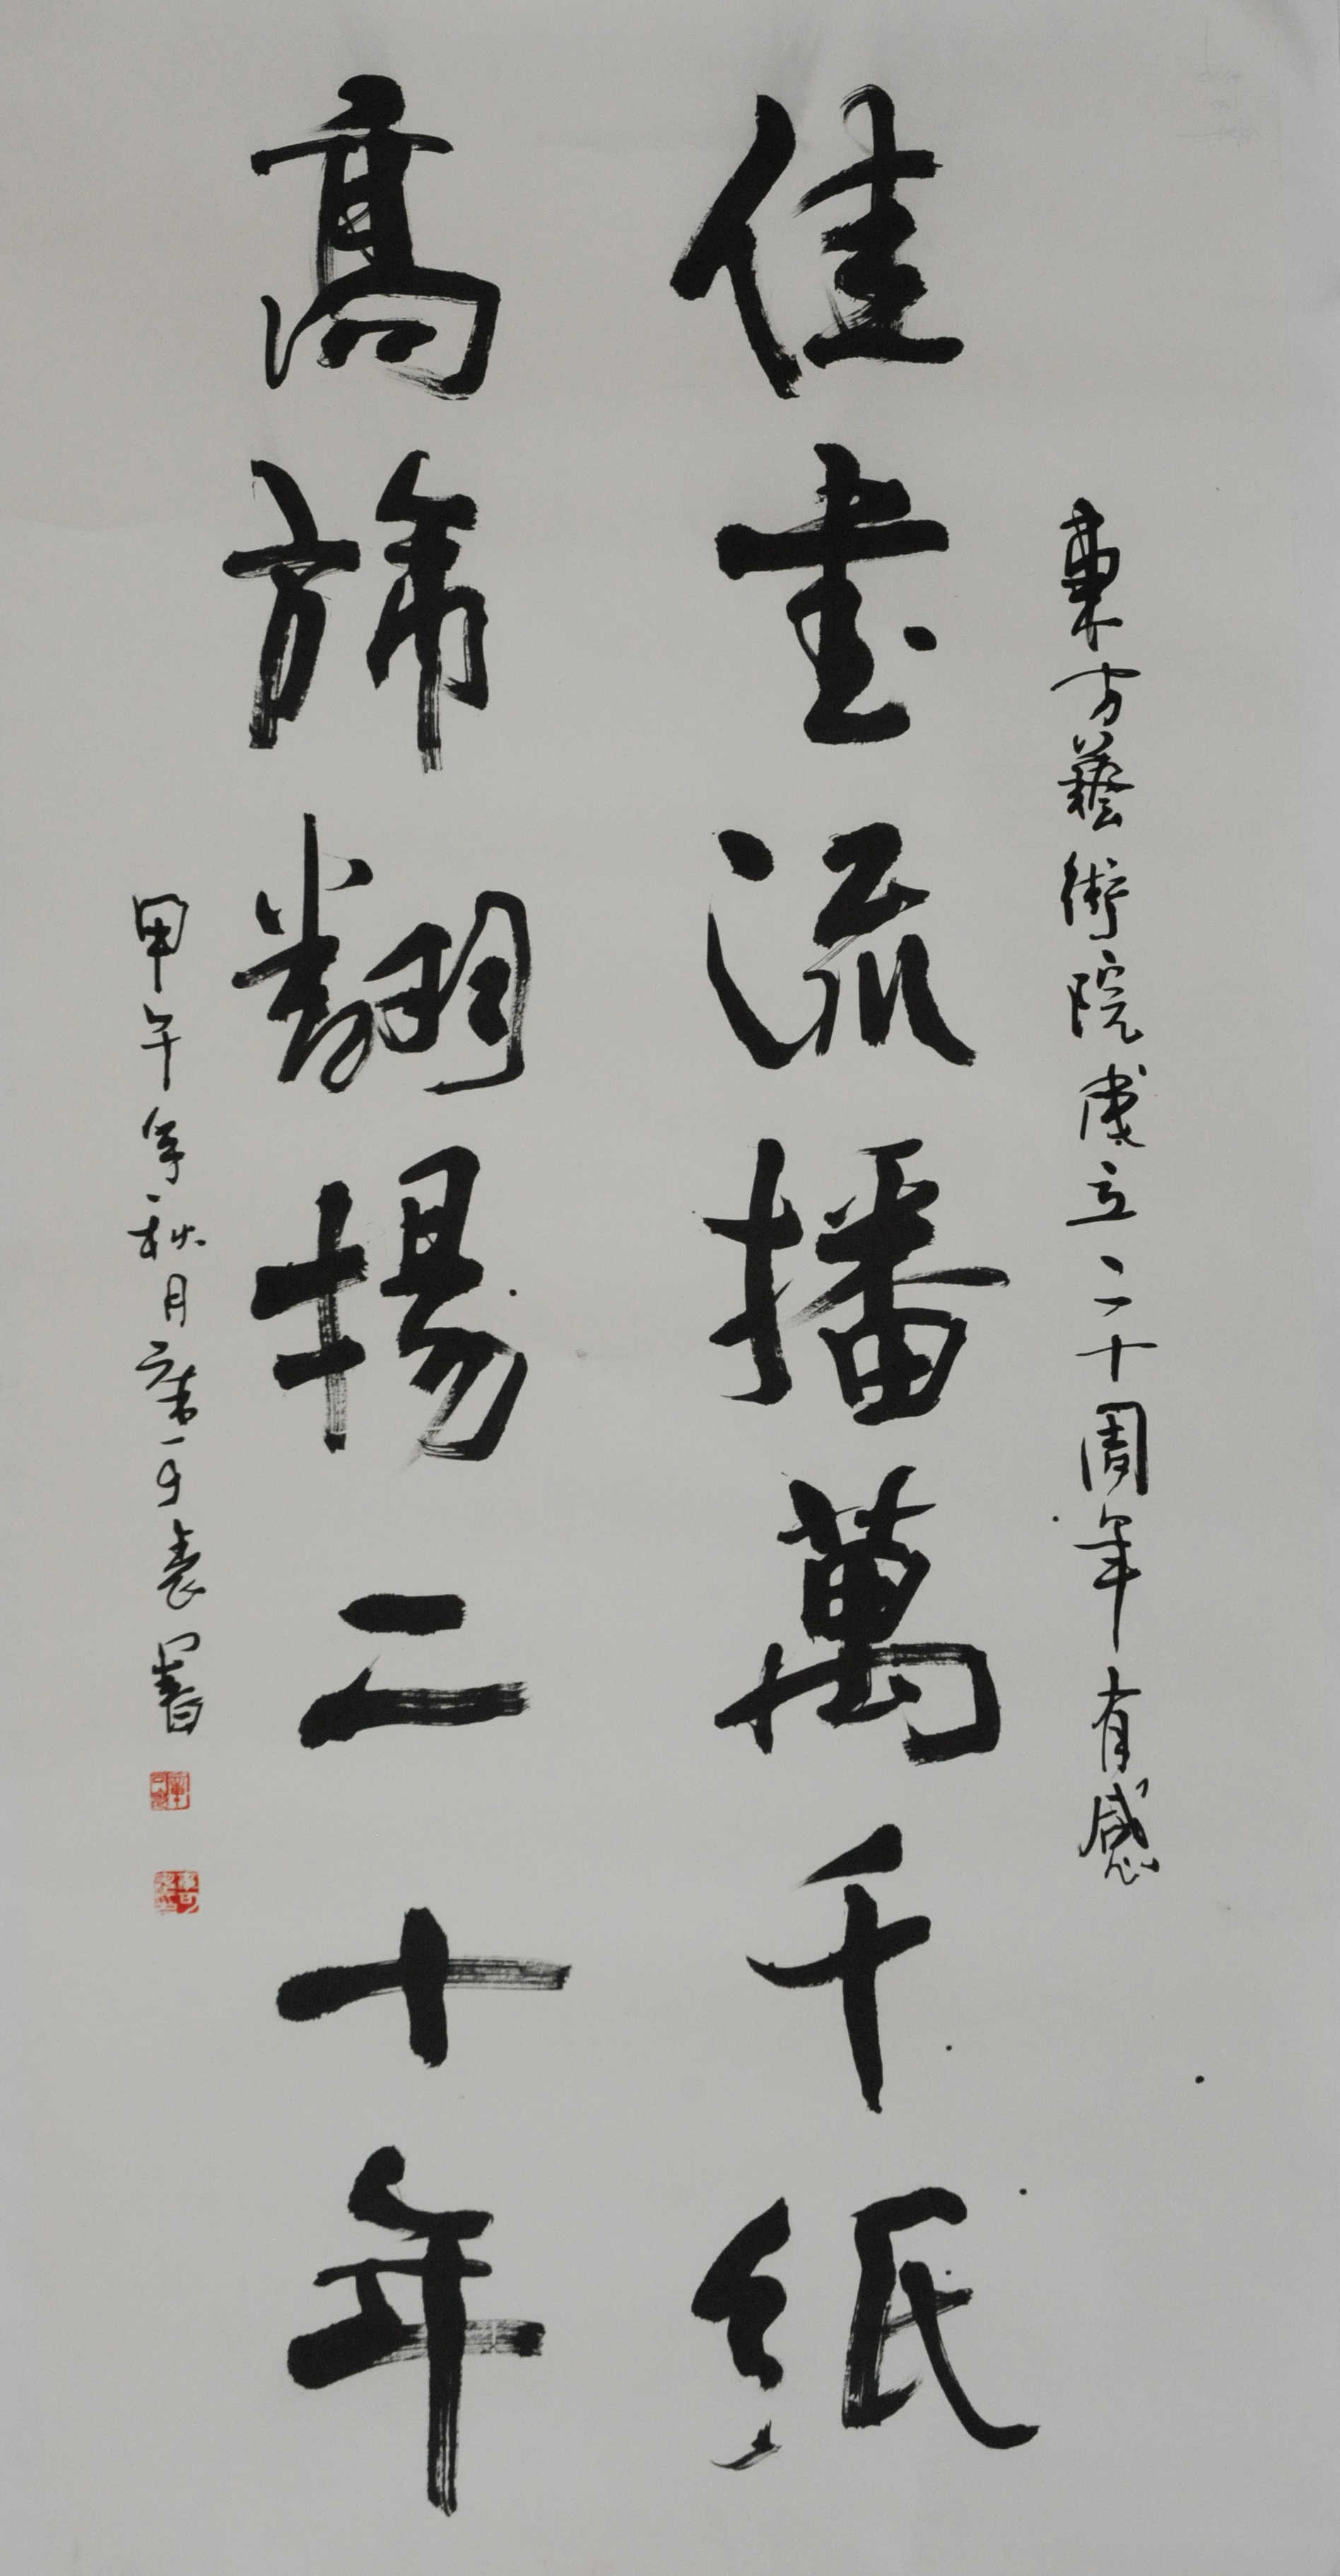 東方藝術院成立二十周年有感
佳書流播萬千紙
高旆翻揚二十年
甲午年秋月 書